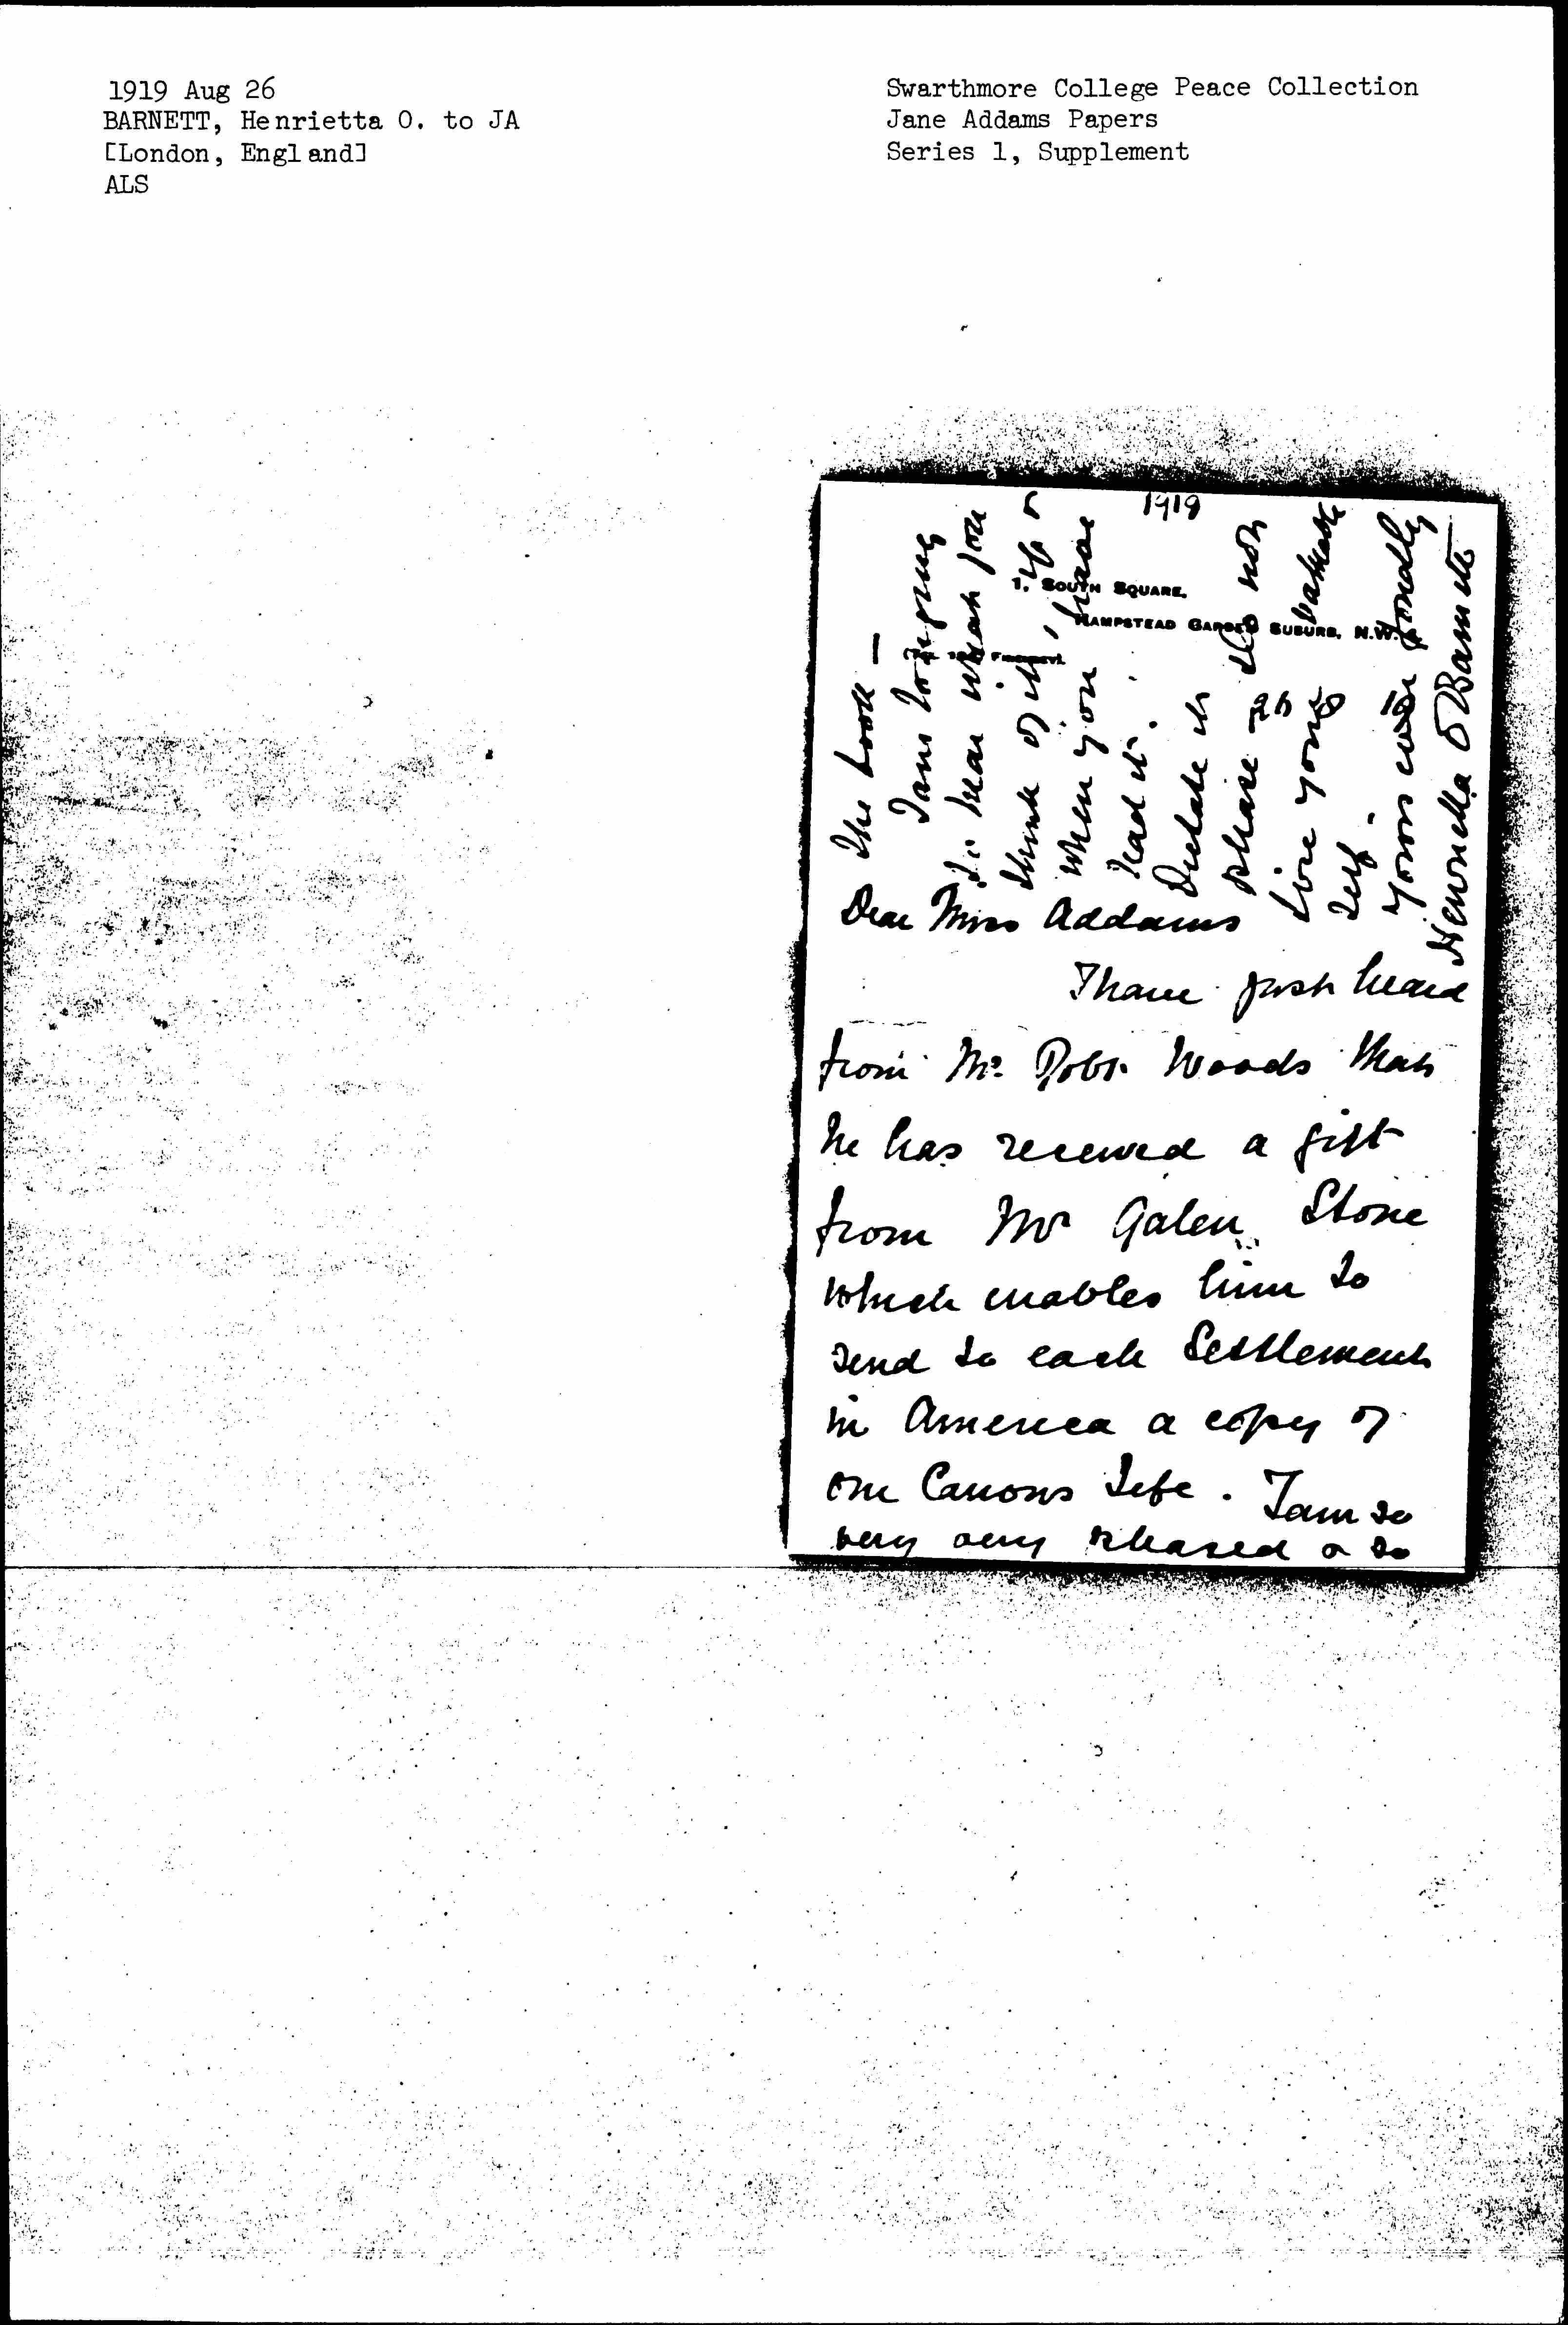 1919 Aug 26
BARNETT, Henrietta O. to JA
[London, England]
ALS
Swarthmore College Peace Collection
Jane Addams Papers
Series 1, Supplement
1919
1, SOUTH SQUARE,
HAMPSTEAD GARDEN SUBURB, N.W.
Dear Miss Addams
I have just heard
from Mr. Robt. Woods that
he has received a gift
from Mr Galen Stone
which enables him to
send to each Settlement
in America a copy of
our Canons Life. I am so
very very pleased & so
the book —
I am longing
to hear what you
think of it, if &
when you have
read it.
Dictate it
please do not
tire your valuable
self.
yours ever fondly
Henrietta O Barnett